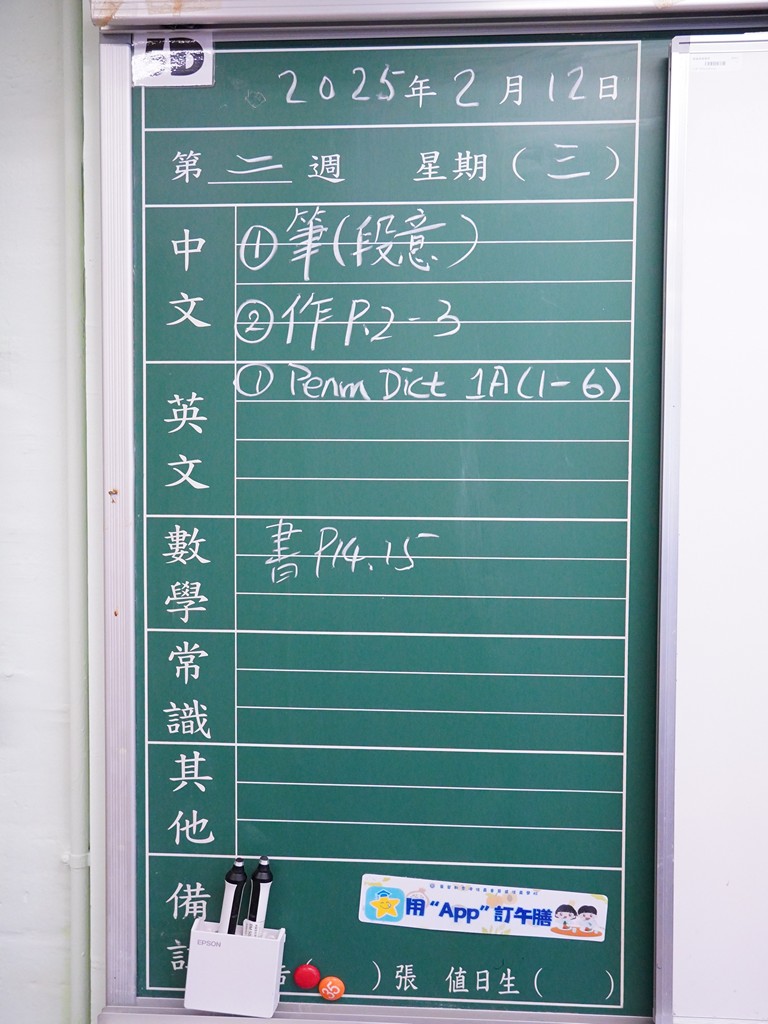 D
2025年2月12日
第二週 星期(三)
中文
①筆(段意)
②作P.2-3
英文
① Penm Dict 1A(1-6)
數學
書P14.15
常識
其他
備
用“App”訂午膳
EPSON
35
)張 值日生( )